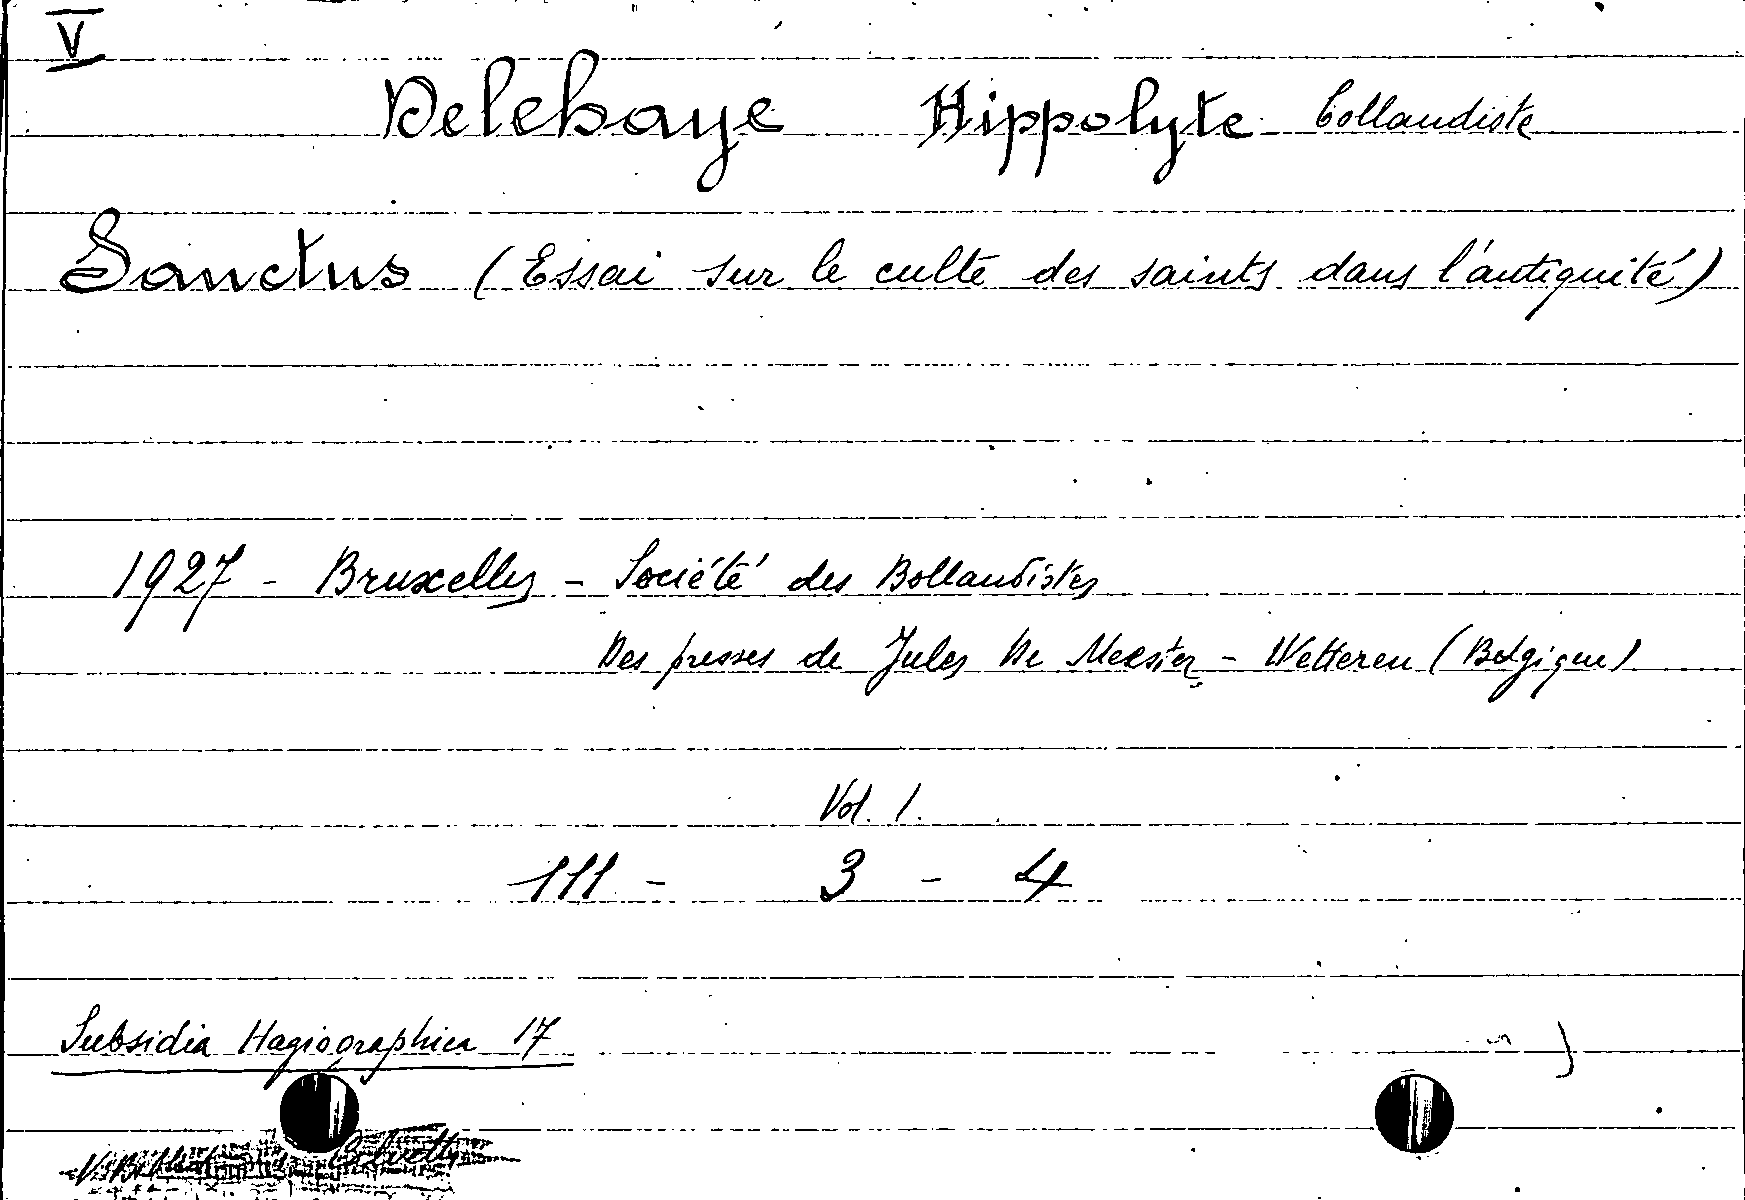 V
Delehaye Hippolyte bollandiste
Sanctus (Essai sur le culte des saints dans l'antiquité)
1927 - Bruxelles - Société des Bollandistes
Des presses de Jules De Meester - Wetteren (Belgique)
Vol. 1.
111 - 3 - 4
Subsidia Hagiographica 17